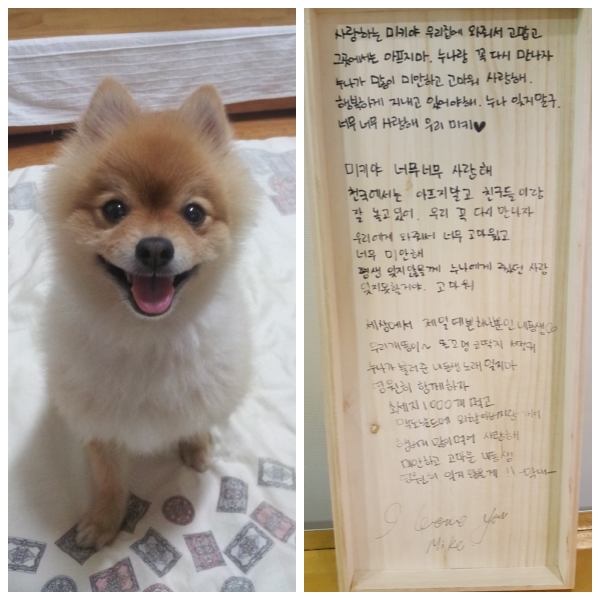 사랑하는 미키야 우리집에 와줘서 고맙고
그곳에서는 아프지마. 누나랑 꼭 다시 만나자
누나가 많이 미안하고 고마워 사랑해.
행복하게 지내고 있어야해. 누나 잊지말구.
너무 너무 사랑해 우리 미키♥
미키야 너무너무 사랑해
천국에서는 아프지말고 친구들이랑
잘 놀고있어. 우리 꼭 다시 만나자
우리에게 와줘서 너무 고마웠고
너무 미안해
평생 잊지않을께 누나에게 줬던 사랑
잊지못할거야. 고마워
세상에서 제일 예쁜 하나뿐인 내동생
우리개똥이~
누나가 불러준 내동생 노래 잊지마
영원히 함께하자
소세지 1000개 먹고
맥도날드에
많이먹어 사랑해
미안하고 고마운 내동생
영원히 잊지 않을게 !!
I love you
Mike